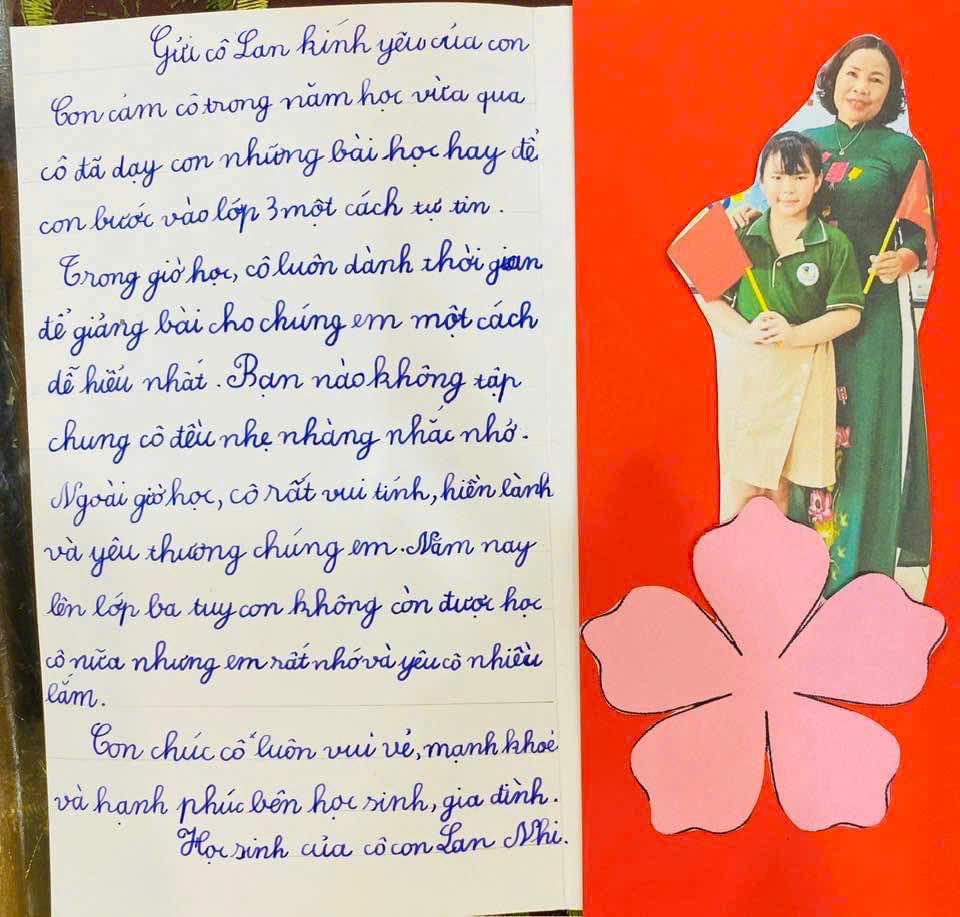 Gửi cô Lan kính yêu của con
Con cảm cô trong năm học vừa qua
cô đã dạy con những bài học hay để
con bước vào lớp 3 một cách tự tin.
Trong giờ học, cô luôn dành thời gian
để giảng bài cho chúng em một cách
dễ hiểu nhất. Bạn nào không tập
chung cô đều nhẹ nhàng nhắc nhở.
Ngoài giờ học, cô rất vui tính, hiền lành
và yêu thương chúng em. Năm nay
lên lớp ba tuy con không còn được học
cô nữa nhưng em rất nhớ và yêu cô nhiều
lắm.
Con chúc cô luôn vui vẻ, mạnh khoẻ
và hạnh phúc bên học sinh, gia đình.
Học sinh của cô con Lan Nhi.